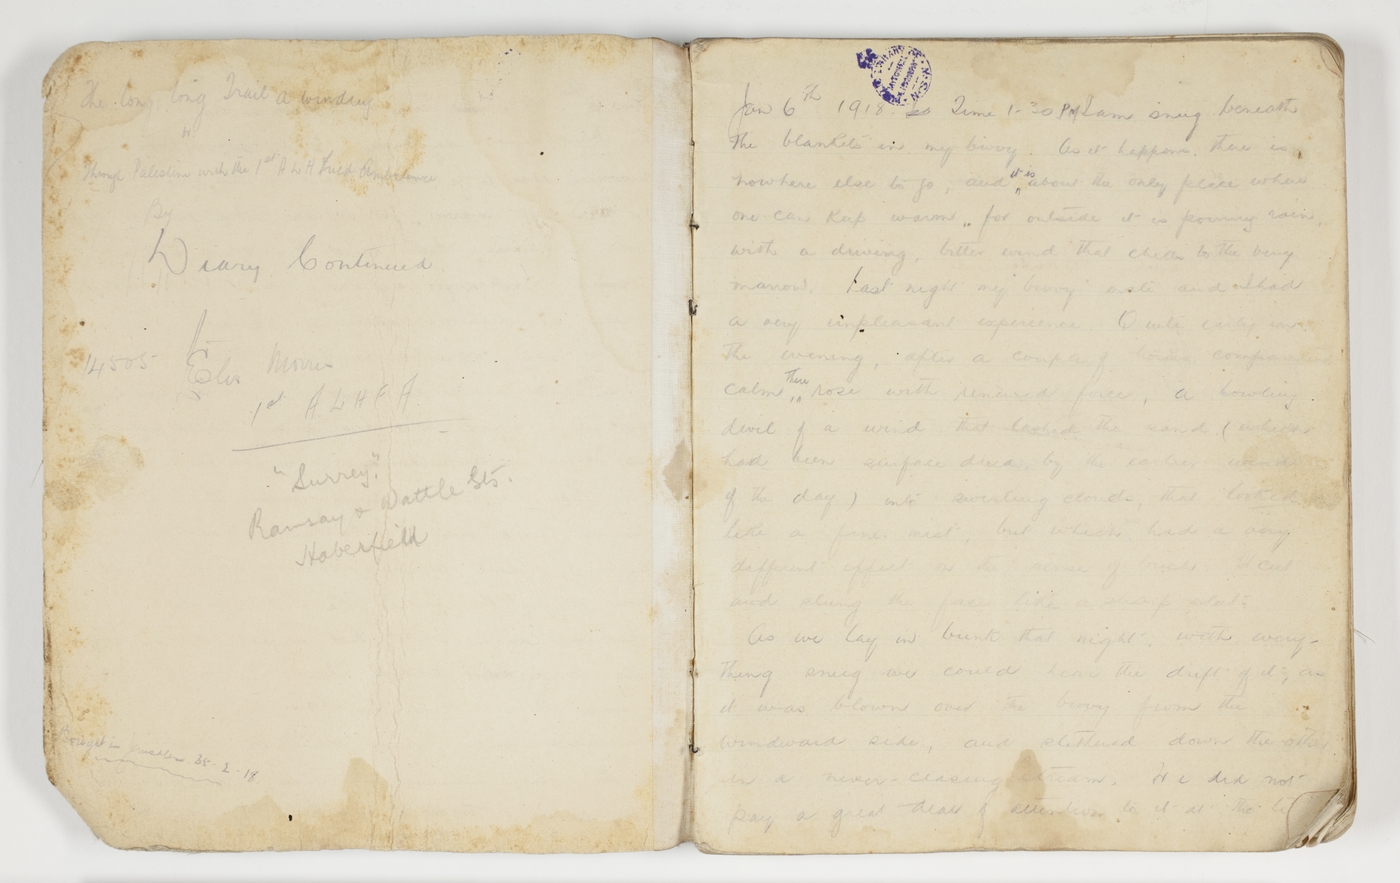 The long, long Trail a winding
"
Through Palestine with the 1st A L H Field Ambulance
By
Diary Continued
14505 Elis Morris
1st A L H F A
"Surrey"
Ramsay & Wattle Sts.
Haberfield
Bought in Jerusalem 25-2-18
Jan 6th 1918. Time 1-30 PM I am snug beneath
the blankets in my bivvy. As it happens, there is
nowhere else to go, and it is about the only place where
one can keep warm, for outside it is pouring rain,
with a driving, bitter wind that chills to the very
marrow. Last night my bivvy mate and I had
a very unpleasant experience. Quite early in
the evening, after a couple of hours comparative
calm, there rose with renewed force, a howling
devil of a wind that lashed the sand (which
had been surface dried by the earlier wind
of the day) into swirling clouds, that looked
like a fine mist, but which had a very
different effect on the sense of It cut
and stung the face like a sharp
As we lay in bunk that night, with every-
thing snug we could hear the drift of it, as
it was blown over the bivvy from the
windward side, and slithered down the other
in a never-ceasing stream. We did not
pay a great deal of attention to it at the